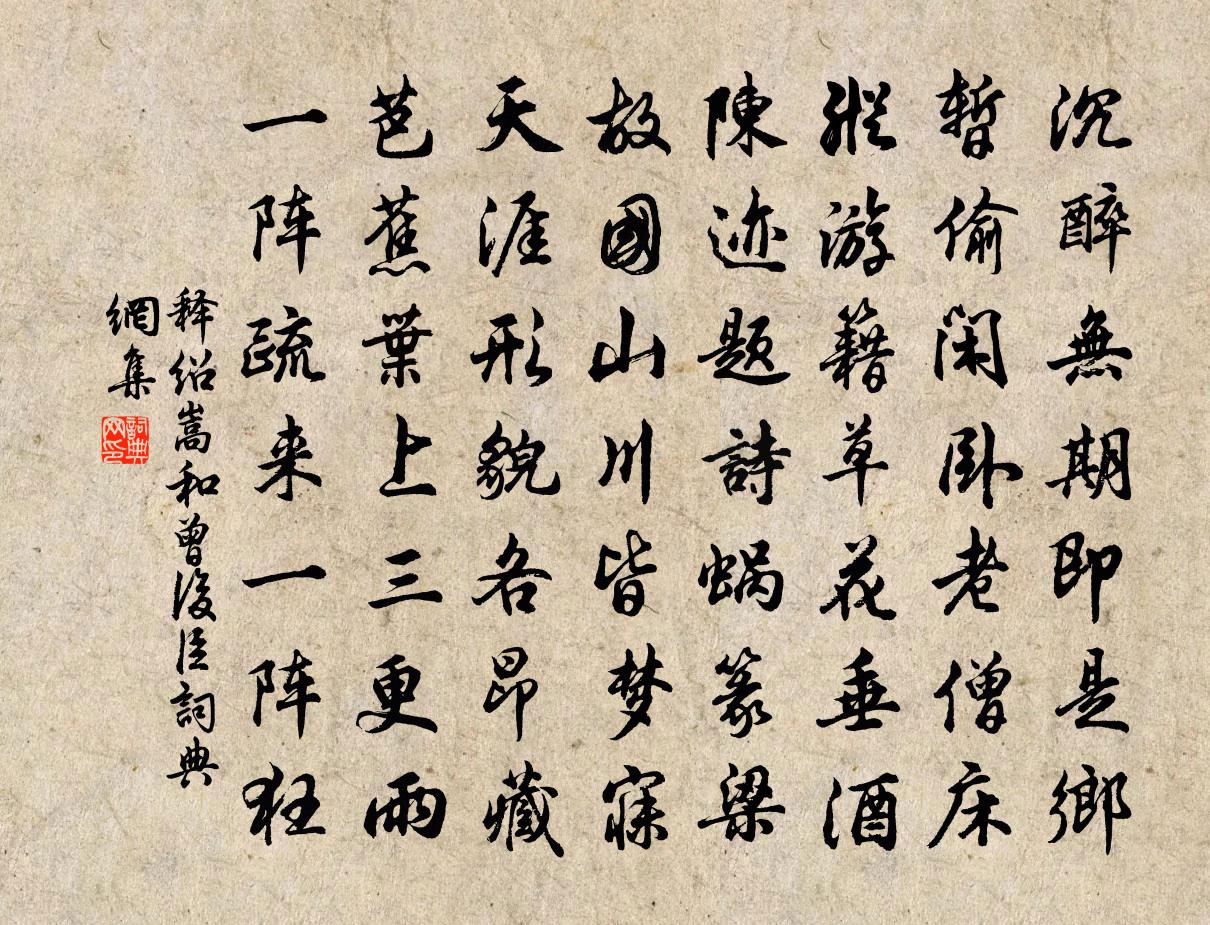 沉醉無期即是鄉
暫偷閑卧老僧床
縱游籍草花垂酒
陳迹題詩蝸篆梁
故國山川皆梦寐
天涯形貌各昂藏
芭蕉葉上三更雨
一阵疏来一阵狂
释绍嵩和曾浚臣詞典
網集
詞典网印